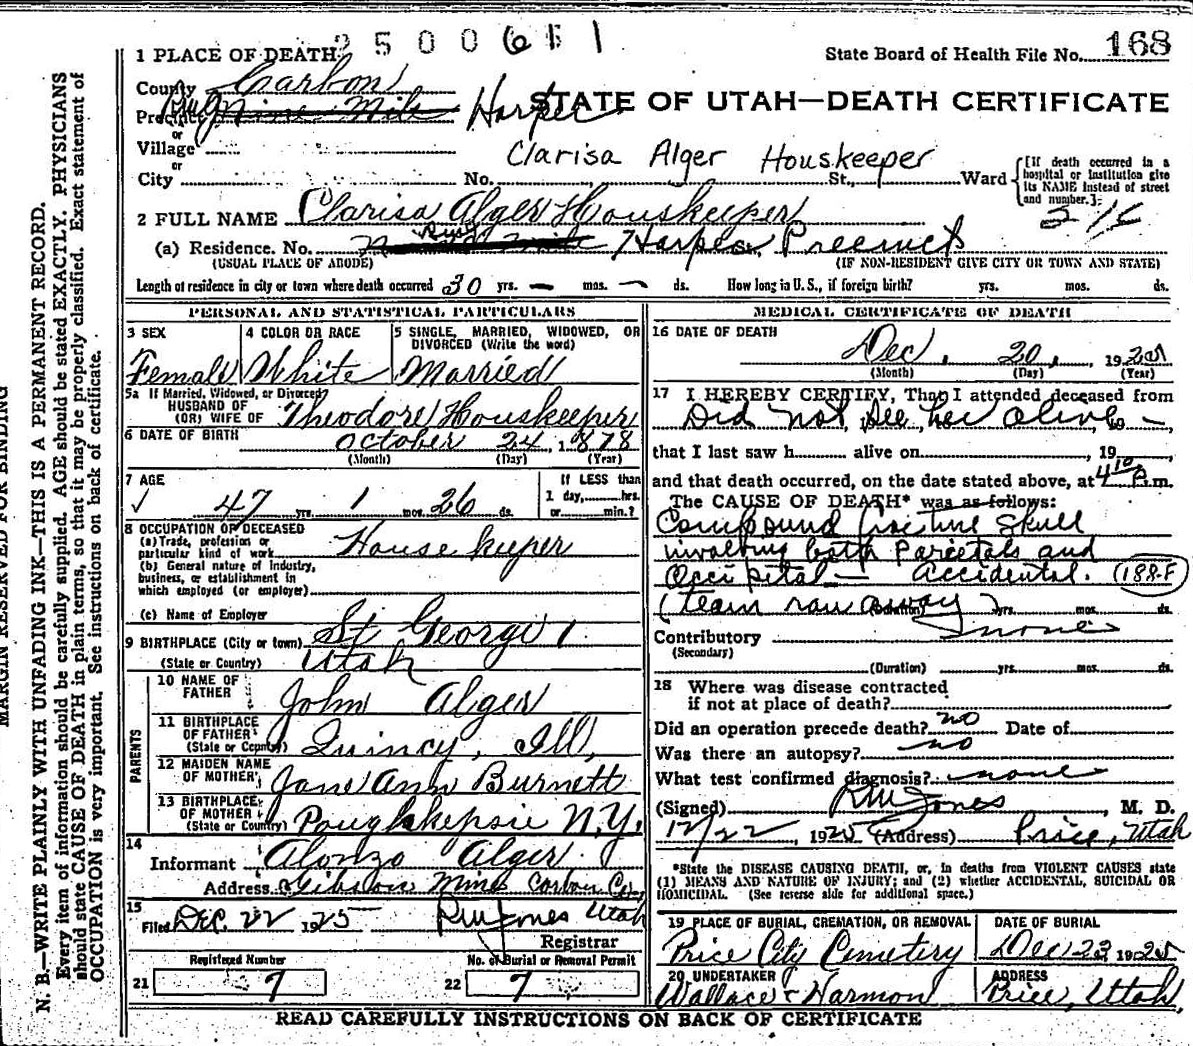 1 PLACE OF DEATH 2500
State Board of Health File No. 168
County Carbon
Precinct Nine Mile Harper
STATE OF UTAH—DEATH CERTIFICATE
or
Village
or
Clarisa Alger Houskeeper
City No. St., Ward
[If death occurred in a hospital or institution give its NAME instead of street and number.]
2 FULL NAME Clarisa Alger Houskeeper
(a) Residence. No. Nine Mile Harper Precinct
(USUAL PLACE OF ABODE) (IF NON-RESIDENT GIVE CITY OR TOWN AND STATE)
Length of residence in city or town where death occurred 30 yrs. — mos. — ds. How long in U. S., if foreign birth? yrs. mos. ds.
PERSONAL AND STATISTICAL PARTICULARS
3 SEX
Female
4 COLOR OR RACE
White
5 SINGLE, MARRIED, WIDOWED, OR
DIVORCED (Write the word)
Married
5a If Married, Widowed, or Divorced
HUSBAND OF
(OR) WIFE OF Theodore Houskeeper
6 DATE OF BIRTH October 24, 1878
(Month) (Day) (Year)
7 AGE
47 yrs. 1 mos. 26 ds.
If LESS than
1 day, hrs.
or min.?
8 OCCUPATION OF DECEASED
(a) Trade, profession or
particular kind of work House keeper
(b) General nature of Industry,
business, or establishment in
which employed (or employer)
(c) Name of Employer
9 BIRTHPLACE (City or town) St George
(State or Country) Utah
PARENTS
10 NAME OF
FATHER John Alger
11 BIRTHPLACE
OF FATHER
(State or Country) Quincy, Ill,
12 MAIDEN NAME
OF MOTHER Jane Ann Burnett
13 BIRTHPLACE
OF MOTHER
(State or Country) Poughkepsie N.Y.
14
Informant Alonzo Alger
Address Gibson Mine Carbon Co, Utah
15
Filed Dec. 22 1925 RW Jones
Registrar
Registered Number
21 7
No. of Burial or Removal Permit
22 7
MEDICAL CERTIFICATE OF DEATH
16 DATE OF DEATH
Dec. 20, 1925
(Month) (Day) (Year)
17 I HEREBY CERTIFY, That I attended deceased from
Did not See her alive to —,
that I last saw h alive on , 19 ,
and that death occurred, on the date stated above, at 4 10 P.m.
The CAUSE OF DEATH* was as follows:
Compound fracture Skull
involving both Parietals and
Occipital — Accidental. (188-F)
(team ran away) (Duration) yrs. mos. ds.
Contributory none
(Secondary)
(Duration) yrs. mos. ds.
18 Where was disease contracted
if not at place of death?
Did an operation precede death? no Date of
Was there an autopsy? no
What test confirmed diagnosis? none
(Signed) RW Jones, M. D.
12/22, 1925 (Address) Price, Utah
*State the DISEASE CAUSING DEATH, or, in deaths from VIOLENT CAUSES state
(1) MEANS AND NATURE OF INJURY; and (2) whether ACCIDENTAL, SUICIDAL OR
HOMICIDAL. (See reverse side for additional space.)
19 PLACE OF BURIAL, CREMATION, OR REMOVAL
Price City Cemetery
DATE OF BURIAL
Dec 23 1925
20 UNDERTAKER
Wallace & Harmon
ADDRESS
Price, Utah
READ CAREFULLY INSTRUCTIONS ON BACK OF CERTIFICATE
MARGIN RESERVED FOR BINDING
N. B.—WRITE PLAINLY WITH UNFADING INK—THIS IS A PERMANENT RECORD.
Every item of information should be carefully supplied. AGE should be stated EXACTLY. PHYSICIANS
should state CAUSE OF DEATH in plain terms, so that it may be properly classified. Exact statement of
OCCUPATION is very important. See instructions on back of certificate.